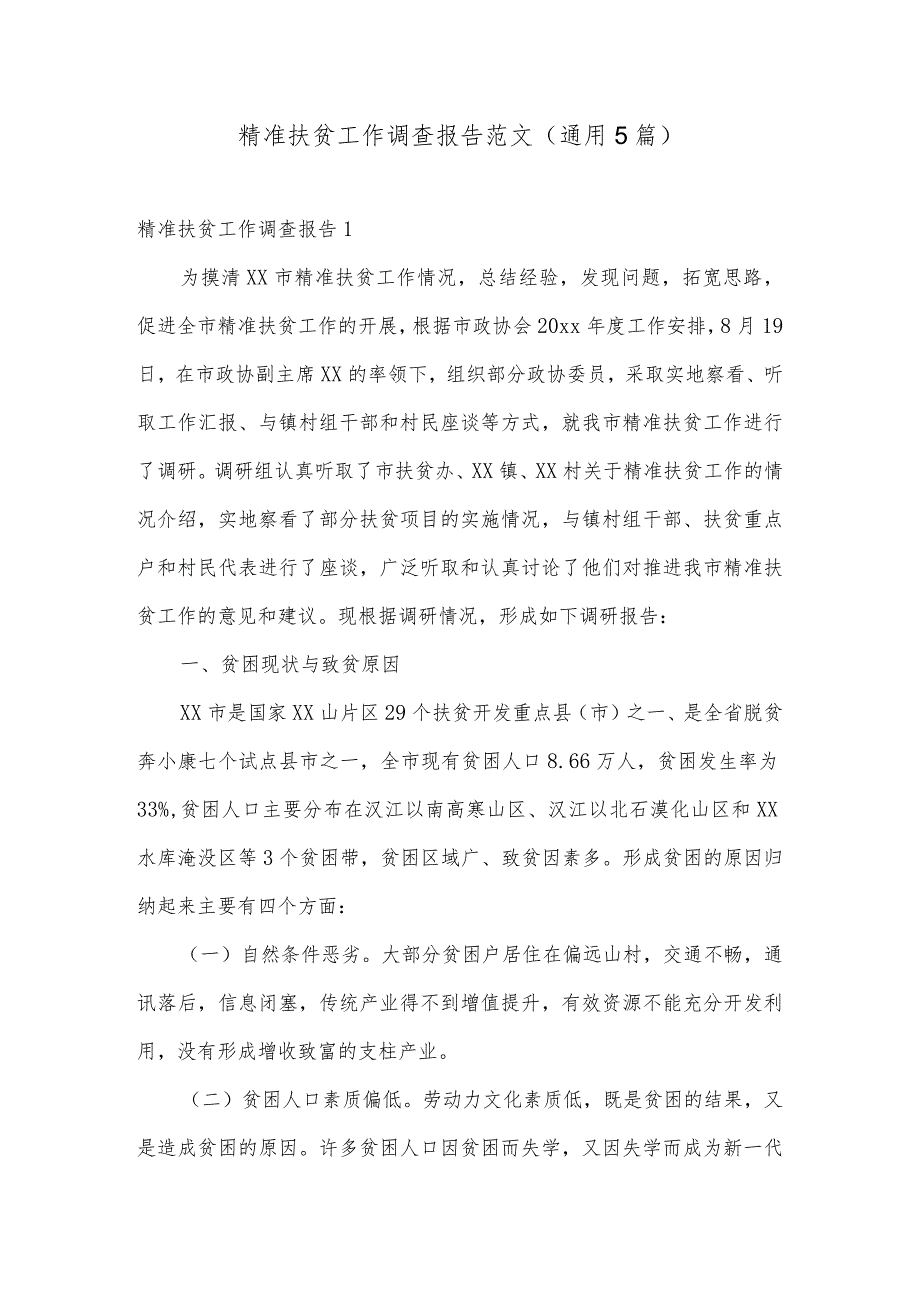 精准扶贫工作调查报告范文（通用5篇）
精准扶贫工作调查报告1
为摸清XX市精准扶贫工作情况，总结经验，发现问题，拓宽思路，
促进全市精准扶贫工作的开展，根据市政协会20xx年度工作安排，8月19
日，在市政协副主席XX的率领下，组织部分政协委员，采取实地察看、听
取工作汇报、与镇村组干部和村民座谈等方式，就我市精准扶贫工作进行
了调研。调研组认真听取了市扶贫办、XX镇、XX村关于精准扶贫工作的情
况介绍，实地察看了部分扶贫项目的实施情况，与镇村组干部、扶贫重点
户和村民代表进行了座谈，广泛听取和认真讨论了他们对推进我市精准扶
贫工作的意见和建议。现根据调研情况，形成如下调研报告：
一、贫困现状与致贫原因
XX市是国家XX山片区29个扶贫开发重点县（市）之一、是全省脱贫
奔小康七个试点县市之一，全市现有贫困人口8.66万人，贫困发生率为
33%,贫困人口主要分布在汉江以南高寒山区、汉江以北石漠化山区和XX
水库淹没区等3个贫困带，贫困区域广、致贫因素多。形成贫困的原因归
纳起来主要有四个方面：
（一）自然条件恶劣。大部分贫困户居住在偏远山村，交通不畅，通
讯落后，信息闭塞，传统产业得不到增值提升，有效资源不能充分开发利
用，没有形成增收致富的支柱产业。
（二）贫困人口素质偏低。劳动力文化素质低，既是贫困的结果，又
是造成贫困的原因。许多贫困人口因贫困而失学，又因失学而成为新一代